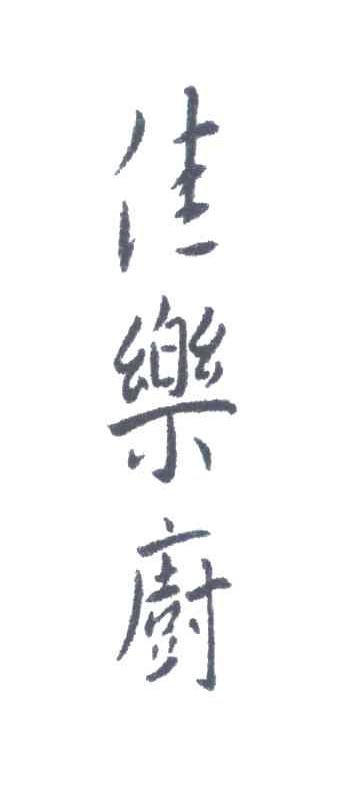 佳樂廚